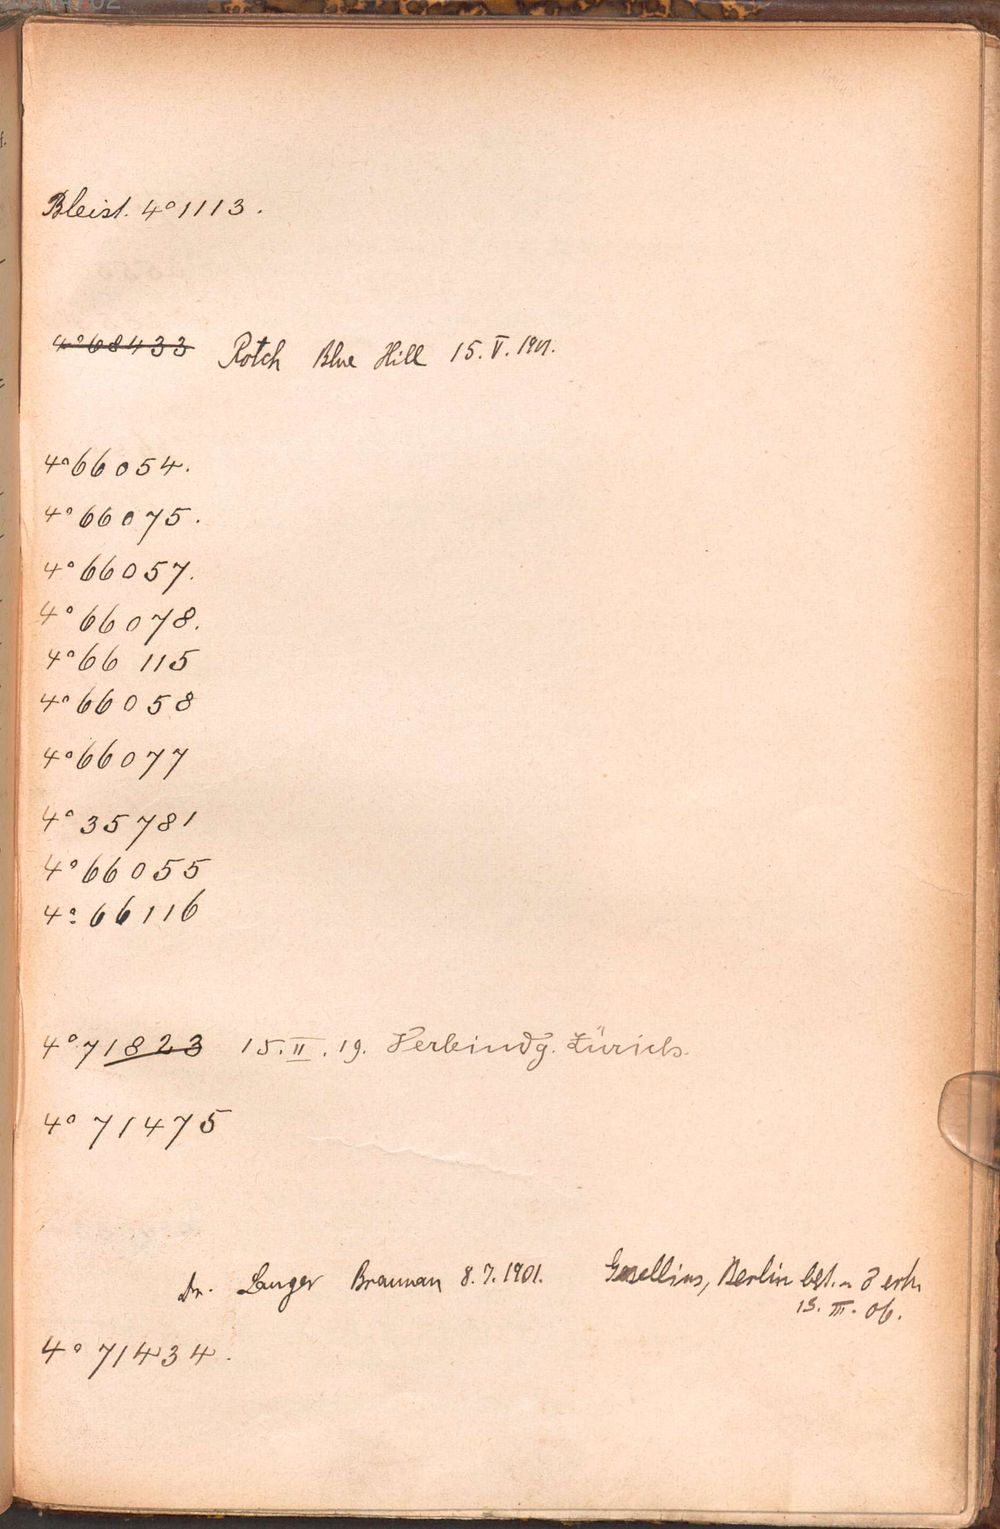 Bleist. 4° 1113.
4° 68433 Rotch Blue Hill 15. V. 1901.
4° 66054.
4° 66075.
4° 66057.
4° 66078.
4° 66 115
4° 66058
4° 66077
4° 35781
4° 66055
4° 66116
4° 71823 15. II. 19. Verbindg. Zürich.
4° 71475
Dr. Langer Braunau 8. 7. 1901. Gsellius, Berlin
13. III. 06.
4° 71434.